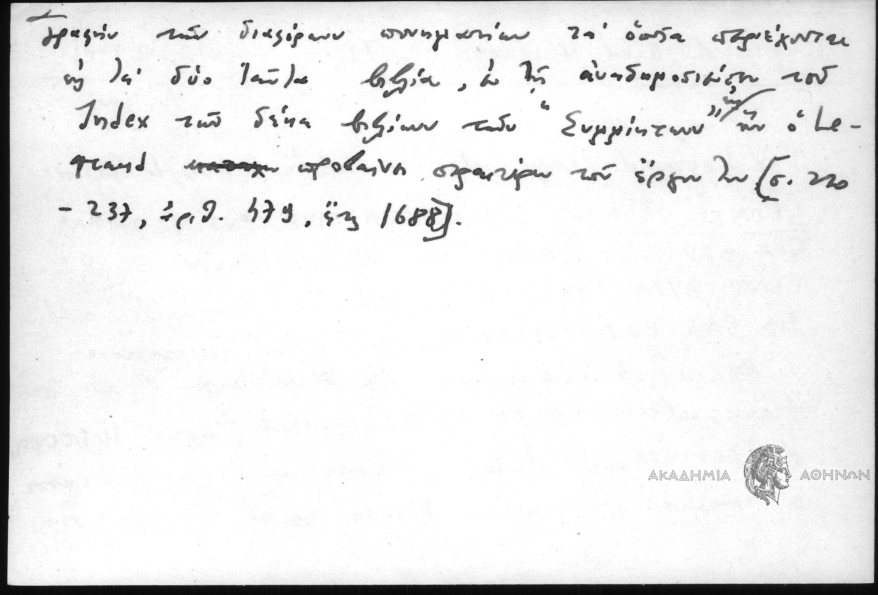 γραφὴν τῶν διαφόρων πονημάτων τὰ ὁποῖα περιέχονται
εἰς τὰ δύο ταῦτα βιβλία, ἐν τῇ ἀναδημοσιεύσει τοῦ
Index τῶν δέκα βιβλίων τῶν "Συμμίκτων" εἰς ἣν ὁ Le-
grand προβαίνει περαιτέρω τοῦ ἔργου του [σ. 220
- 237, ἀριθ. 479, ἔτ. 1688].
ΑΚΑΔΗΜΙΑ ΑΘΗΝΩΝ